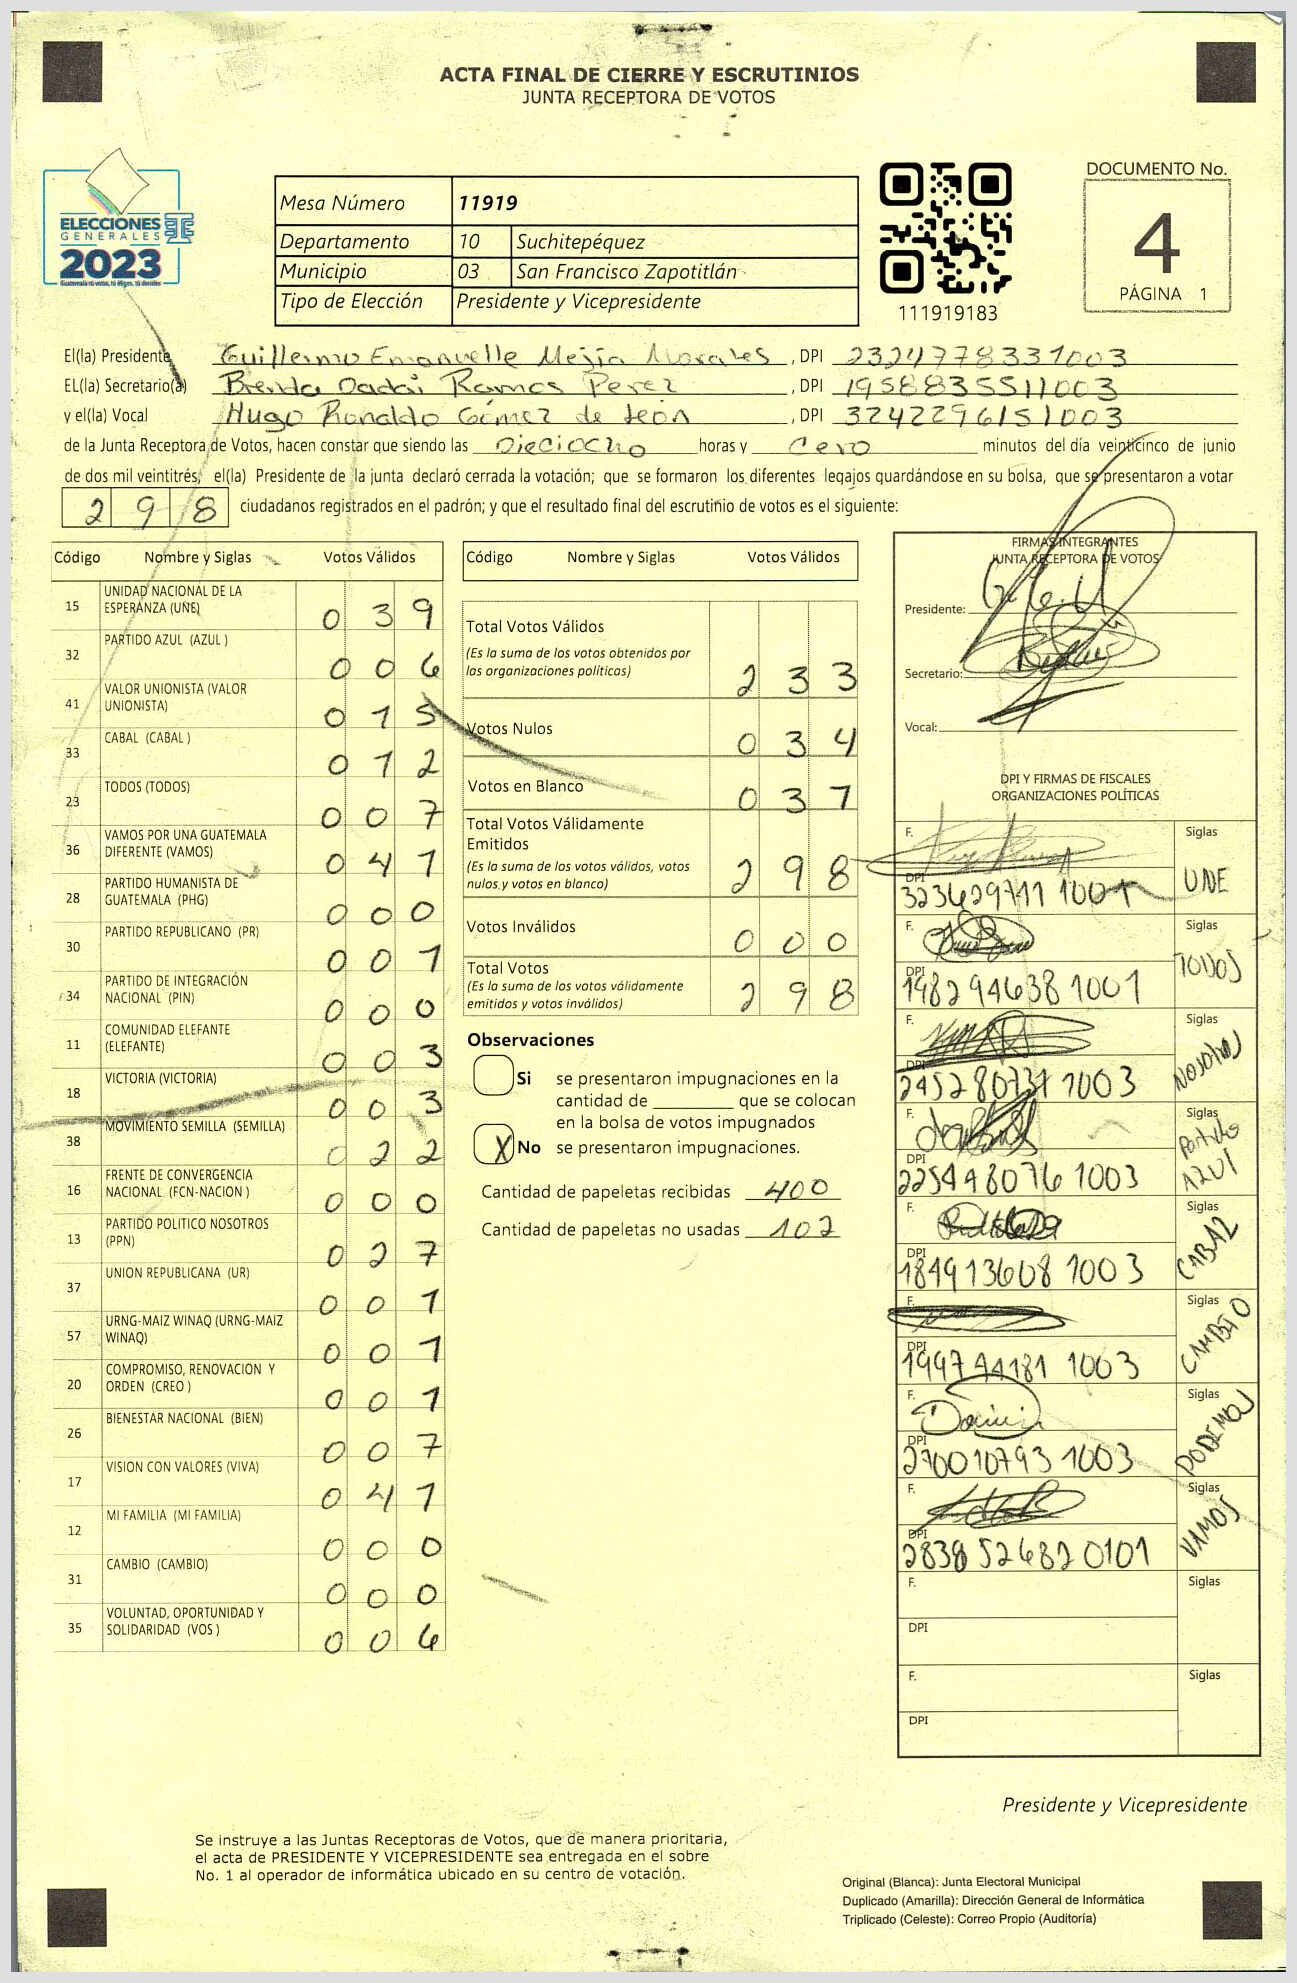 ACTA FINAL DE CIERRE Y ESCRUTINIOS
JUNTA RECEPTORA DE VOTOS
ELECCIONES
GENERALES
2023
Guatemala tú votas, tú eliges, tú decides
Mesa Número 11919
Departamento 10 Suchitepéquez
Municipio 03 San Francisco Zapotitlán
Tipo de Elección Presidente y Vicepresidente
111919183
DOCUMENTO No.
4
PÁGINA 1
El(la) Presidente Guillermo Emanuelle Mejía Morales , DPI 2324778331003
EL(la) Secretario(a) Brenda Dadai Ramos Perez , DPI 1958835511003
y el(la) Vocal Hugo Ronaldo Gómez de León , DPI 3242296151003
de la Junta Receptora de Votos, hacen constar que siendo las Dieciocho horas y Cero minutos del día veinticinco de junio
de dos mil veintitrés, el(la) Presidente de la junta declaró cerrada la votación; que se formaron los diferentes legajos guardándose en su bolsa, que se presentaron a votar
298 ciudadanos registrados en el padrón; y que el resultado final del escrutinio de votos es el siguiente:
Código Nombre y Siglas Votos Válidos
15 UNIDAD NACIONAL DE LA
ESPERANZA (UNE) 039
32 PARTIDO AZUL (AZUL ) 006
41 VALOR UNIONISTA (VALOR
UNIONISTA) 015
33 CABAL (CABAL ) 012
23 TODOS (TODOS) 007
36 VAMOS POR UNA GUATEMALA
DIFERENTE (VAMOS) 041
28 PARTIDO HUMANISTA DE
GUATEMALA (PHG) 000
30 PARTIDO REPUBLICANO (PR) 001
34 PARTIDO DE INTEGRACIÓN
NACIONAL (PIN) 000
11 COMUNIDAD ELEFANTE
(ELEFANTE) 003
18 VICTORIA (VICTORIA) 003
38 MOVIMIENTO SEMILLA (SEMILLA) 022
16 FRENTE DE CONVERGENCIA
NACIONAL (FCN-NACION ) 000
13 PARTIDO POLITICO NOSOTROS
(PPN) 027
37 UNION REPUBLICANA (UR) 001
57 URNG-MAIZ WINAQ (URNG-MAIZ
WINAQ) 001
20 COMPROMISO, RENOVACION Y
ORDEN (CREO ) 001
26 BIENESTAR NACIONAL (BIEN) 007
17 VISION CON VALORES (VIVA) 041
12 MI FAMILIA (MI FAMILIA) 000
31 CAMBIO (CAMBIO) 000
35 VOLUNTAD, OPORTUNIDAD Y
SOLIDARIDAD (VOS ) 006
Código Nombre y Siglas Votos Válidos
Total Votos Válidos
(Es la suma de los votos obtenidos por
las organizaciones políticas) 233
Votos Nulos 034
Votos en Blanco 031
Total Votos Válidamente
Emitidos
(Es la suma de los votos válidos, votos
nulos y votos en blanco) 298
Votos Inválidos 000
Total Votos
(Es la suma de los votos válidamente
emitidos y votos inválidos) 298
Observaciones
Si se presentaron impugnaciones en la
cantidad de ________ que se colocan
en la bolsa de votos impugnados
X No se presentaron impugnaciones.
Cantidad de papeletas recibidas 400
Cantidad de papeletas no usadas 102
FIRMAS INTEGRANTES
JUNTA RECEPTORA DE VOTOS
Presidente:
Secretario:
Vocal:
DPI Y FIRMAS DE FISCALES
ORGANIZACIONES POLÍTICAS
F. Siglas
DPI UNE
F. Siglas
DPI 198294638 1001 TODOS
F. Siglas
DPI 245280731 1003 NOSOTROS
F. Siglas
DPI 225448076 1003 Partido
AZUL
F. Siglas
DPI 184913608 1003 CABAL
F. Siglas
DPI 199744181 1003 CAMBIO
F. Siglas
DPI 270010793 1003 PODEMOS
F. Siglas
DPI 283852682 0101 VAMOS
F. Siglas
DPI
F. Siglas
DPI
Presidente y Vicepresidente
Se instruye a las Juntas Receptoras de Votos, que de manera prioritaria,
el acta de PRESIDENTE Y VICEPRESIDENTE sea entregada en el sobre
No. 1 al operador de informática ubicado en su centro de votación.
Original (Blanca): Junta Electoral Municipal
Duplicado (Amarilla): Dirección General de Informática
Triplicado (Celeste): Correo Propio (Auditoría)